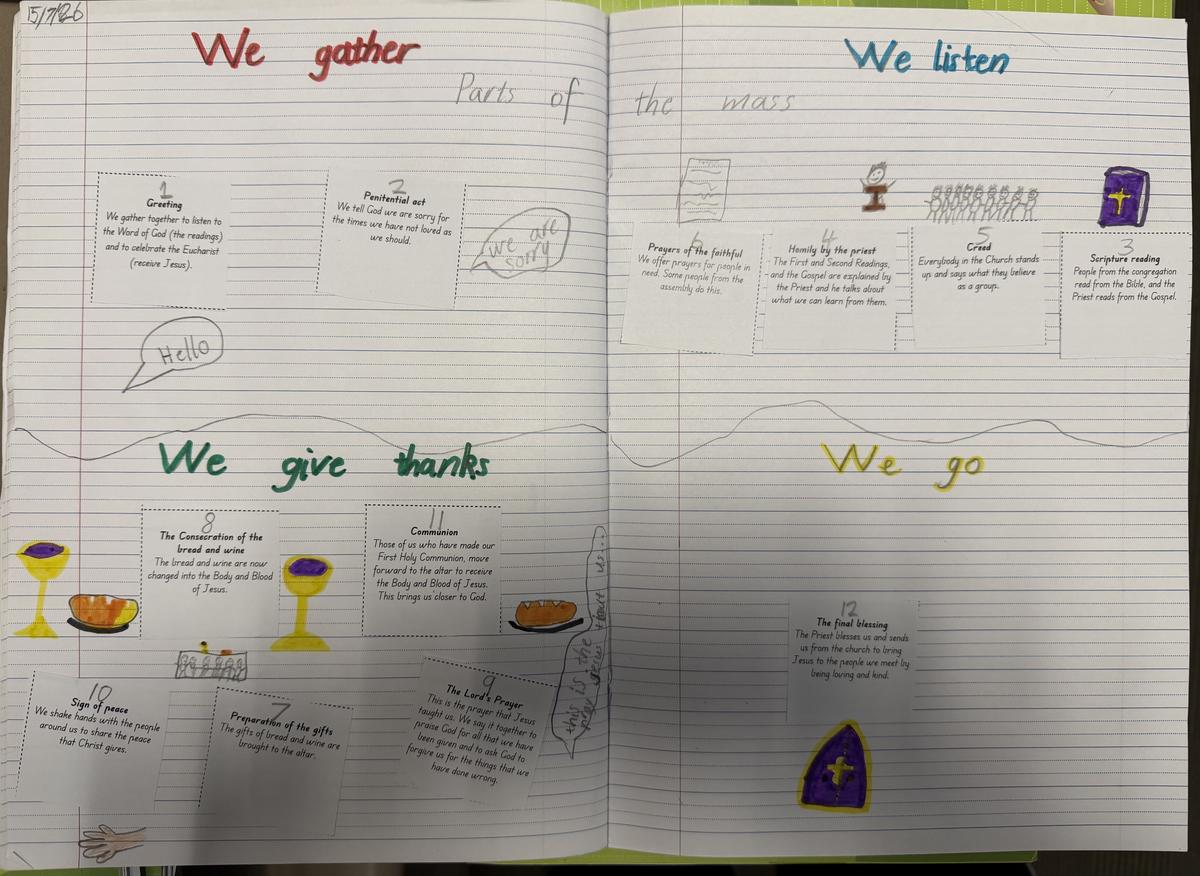 15/7/26
We gather
We listen
Parts of the mass
1
Greeting
We gather together to listen to
the Word of God (the readings)
and to celebrate the Eucharist
(receive Jesus).
2
Penitential act
We tell God we are sorry for
the times we have not loved as
we should.
we are
sorry
Hello
6
Prayers of the faithful
We offer prayers for people in
need. Some people from the
assembly do this.
4
Homily by the priest
The First and Second Readings,
and the Gospel are explained by
the Priest and he talks about
what we can learn from them.
5
Creed
Everybody in the Church stands
up and says what they believe
as a group.
3
Scripture reading
People from the congregation
read from the Bible, and the
Priest reads from the Gospel.
We give thanks
8
The Consecration of the
bread and wine
The bread and wine are now
changed into the Body and Blood
of Jesus.
11
Communion
Those of us who have made our
First Holy Communion, move
forward to the altar to receive
the Body and Blood of Jesus.
This brings us closer to God.
10
Sign of peace
We shake hands with the people
around us to share the peace
that Christ gives.
7
Preparation of the gifts
The gifts of bread and wine are
brought to the altar.
9
The Lord's Prayer
This is the prayer that Jesus
taught us. We say it together to
praise God for all that we have
been given and to ask God to
forgive us for the things that we
have done wrong.
this is the
us...
We go
12
The final blessing
The Priest blesses us and sends
us from the church to bring
Jesus to the people we meet by
being loving and kind.